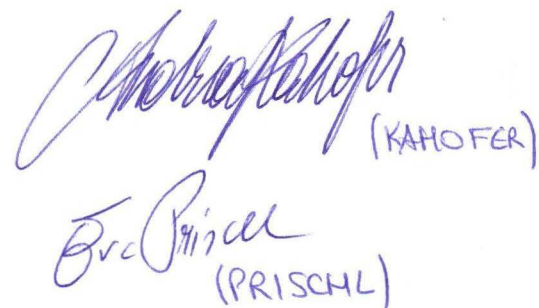 Andrea Kahofer
(KAHOFER)
Eva Prischl
(PRISCHL)